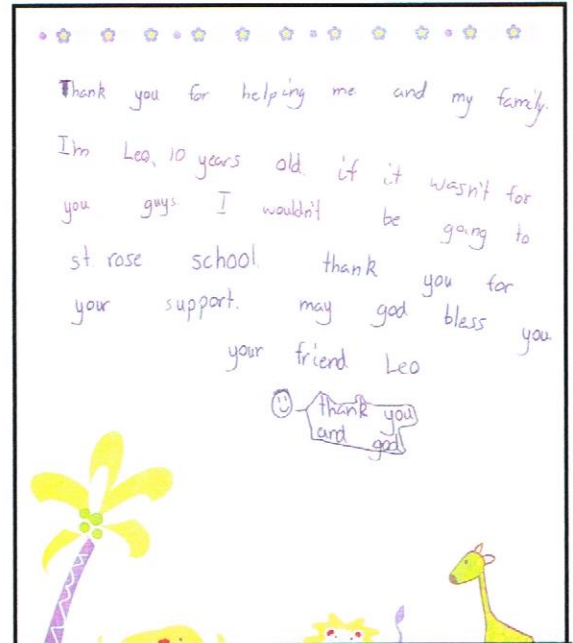 Thank you for helping me and my family.
Im Leo, 10 years old. if it wasn't for
you guys I wouldn't be going to
st. rose school. thank you for
your support. may god bless you
your friend Leo
thank you
and god